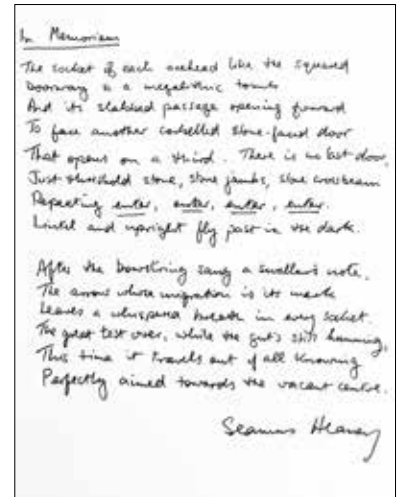 In Memoriam
The socket of each axehead like the squared
Doorway to a megalithic tomb
And its slabbed passage opening forward
To face another corbelled stone-faced door
That opens on a third. There is no last door,
Just threshold stone, stone jambs, stone crossbeam
Repeating enter, enter, enter, enter.
Lintel and upright fly past in the dark.
After the bowstring sang a swallow's note,
The arrow whose migration is its mark
Leaves a whispered breath in every socket.
The great test over, while the gut's still humming,
This time it travels out of all knowing
Perfectly aimed towards the vacant centre.
Seamus Heaney